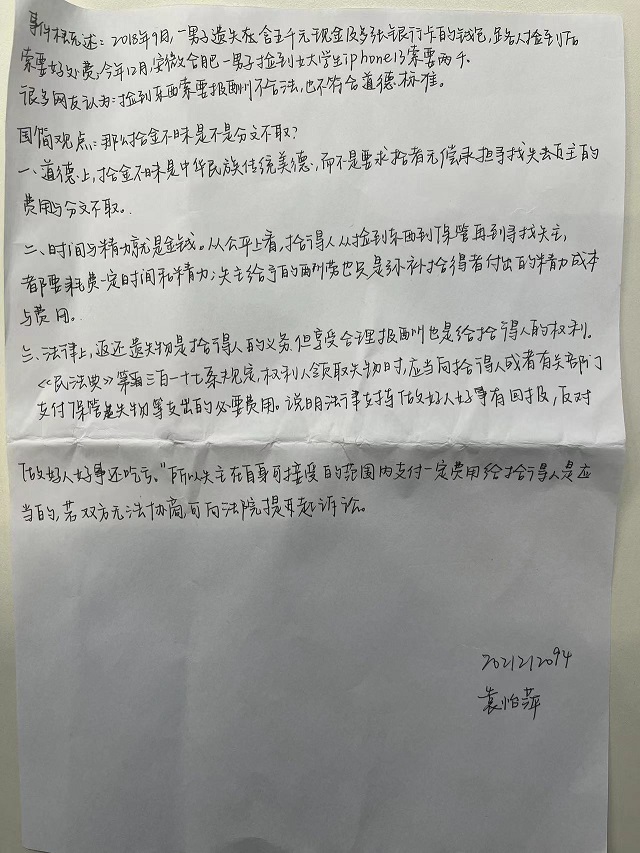 事件概述：2018年9月，一男子遗失内含五千元现金及多张银行卡的钱包，路人捡到后
索要好处费，今年12月，安徽合肥一男子捡到女大学生iphone13索要两千。
很多网友认为：捡到东西索要报酬不合法，也不符合道德标准。
国简观点：那么拾金不昧是不是分文不取？
一、道德上，拾金不昧是中华民族传统美德，而不是要求拾者无偿承担寻找失去失主的
费用与分文不取。
二、时间与精力就是金钱。从公平上看，拾得人从捡到东西到保管再到寻找失主，
都要耗费一定时间和精力；失主给予的酬劳也只是弥补拾得者付出的精力成本
与费用。
三、法律上，返还遗失物是拾得人的义务，但享受合理报酬也是给拾得人的权利。
《民法典》第三百一十七条规定，权利人领取失物时，应当向拾得人或者有关部门
支付保管遗失物等支出的必要费用。说明法律支持做好人好事有回报，反对
“做好人好事还吃亏。”所以失主在自身可接受的范围内支付一定费用给拾得人是应
当的，若双方无法协商，可向法院提起诉讼。
2021212094
袁怡萍